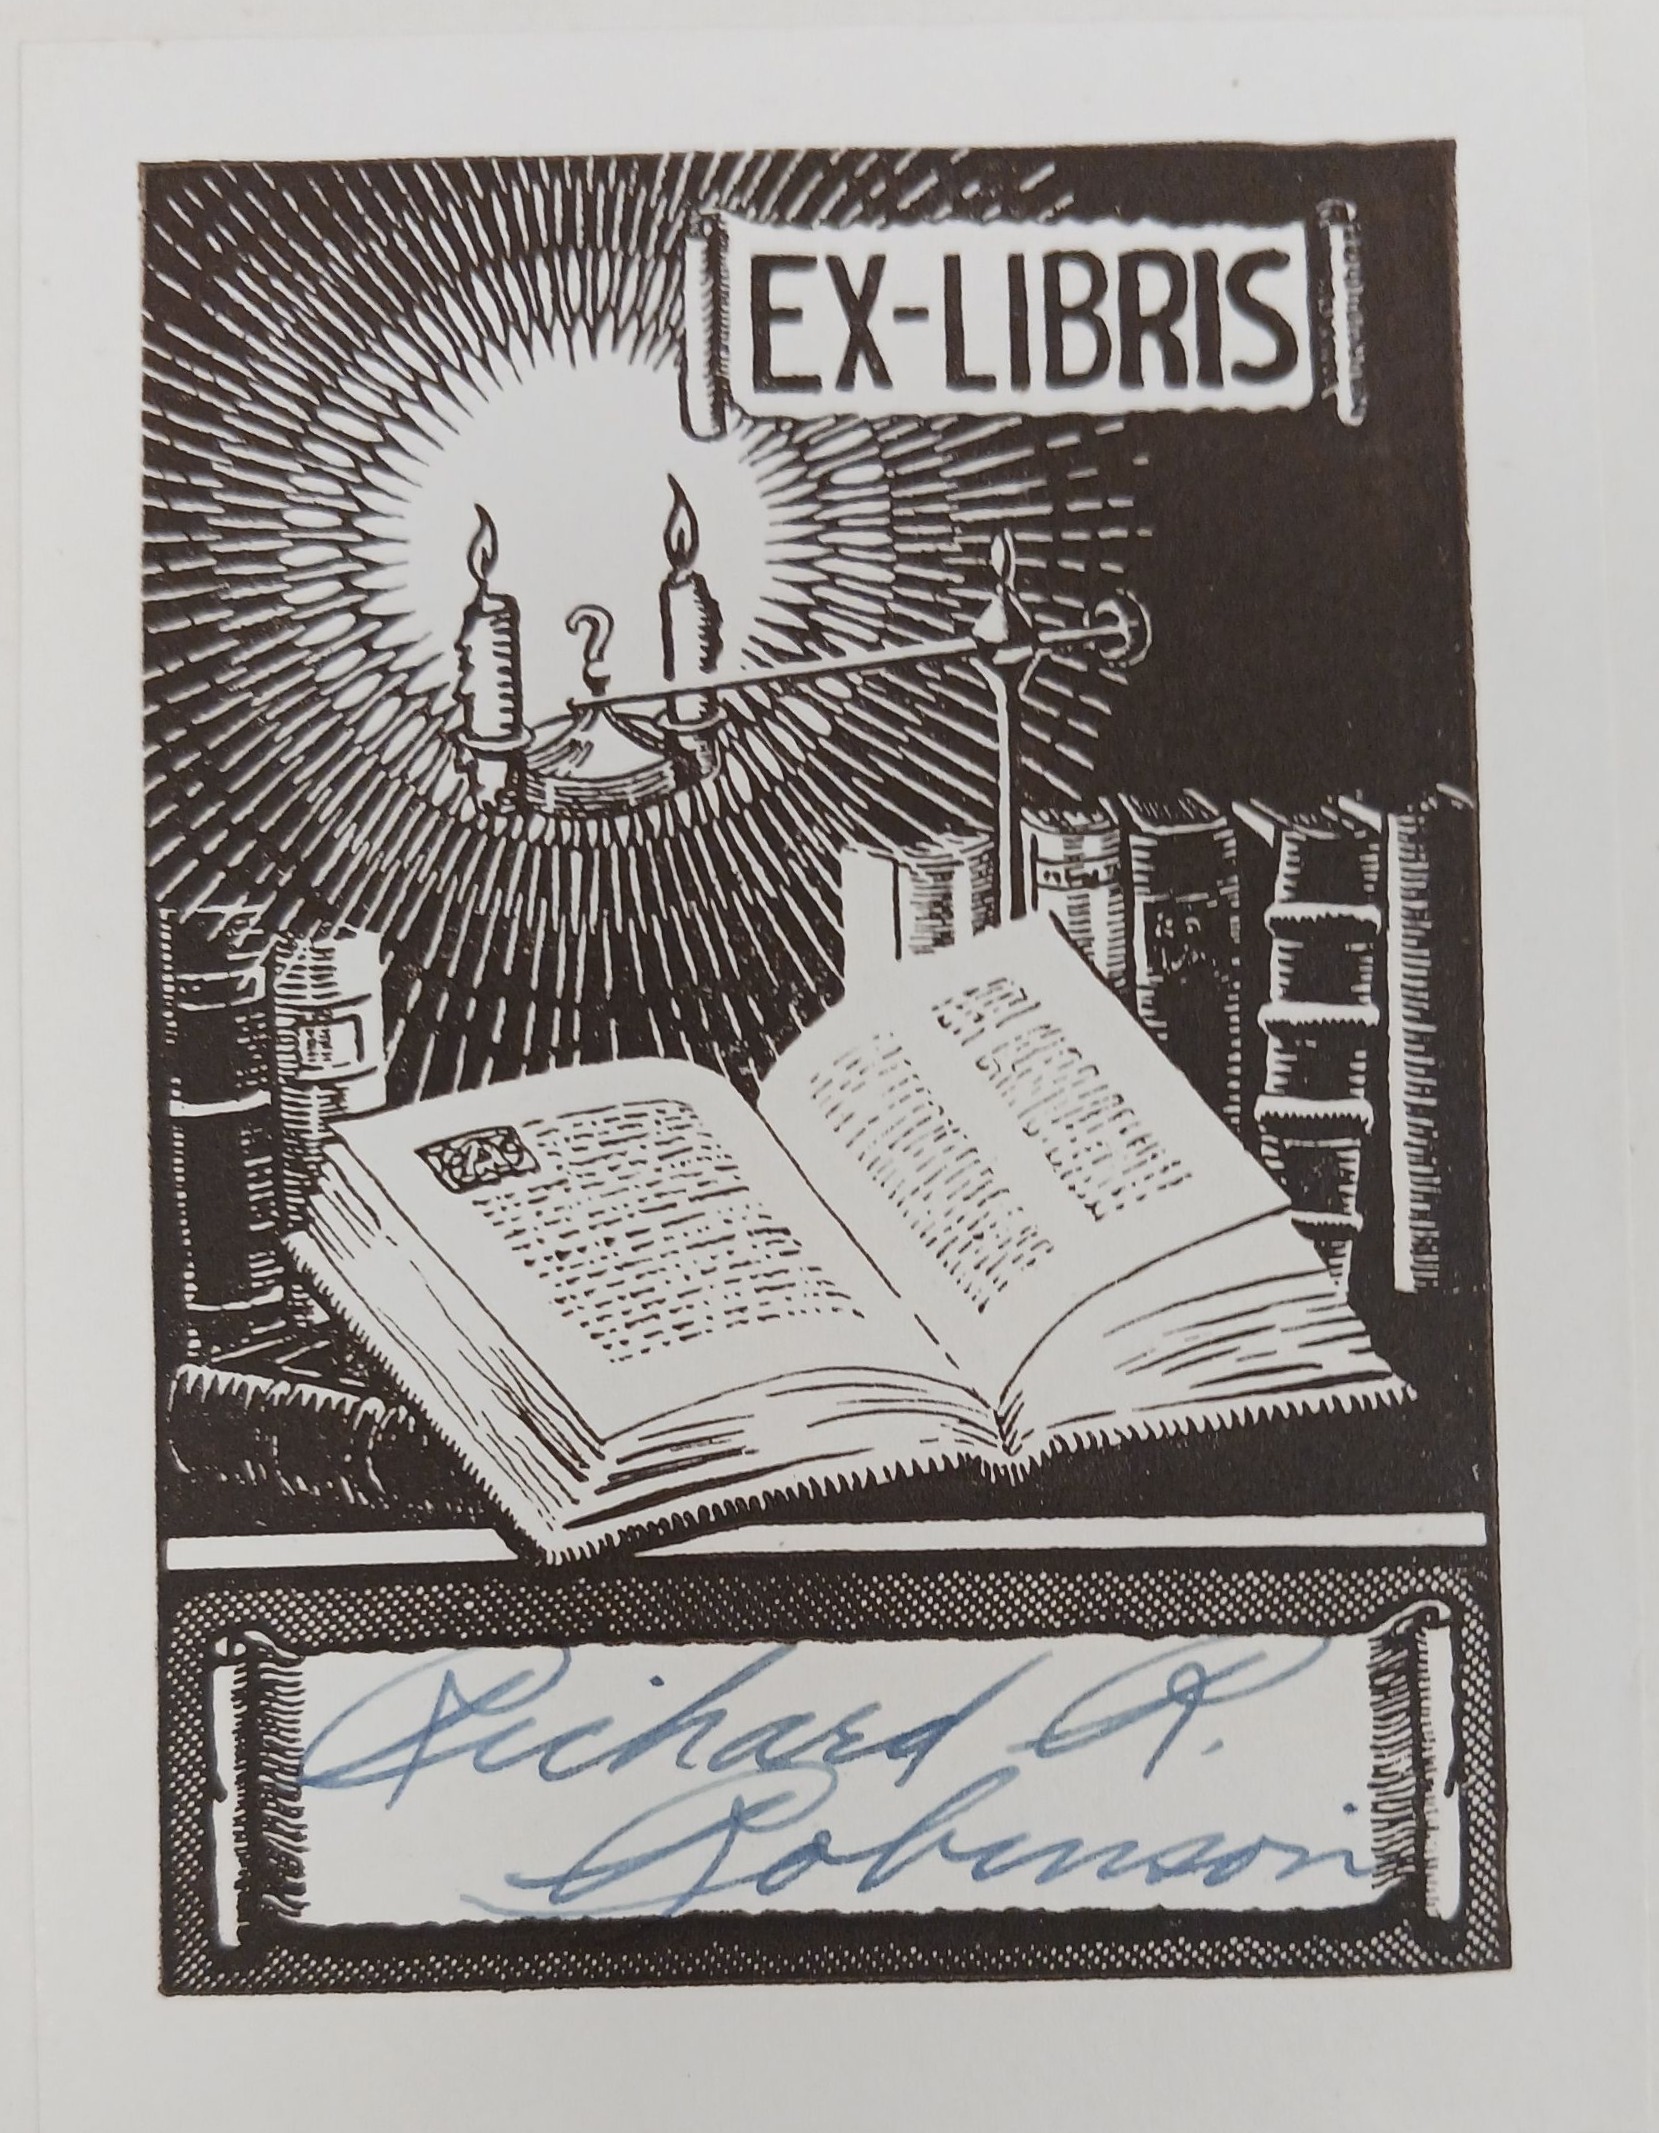 EX-LIBRIS
Richard R.
Robinson